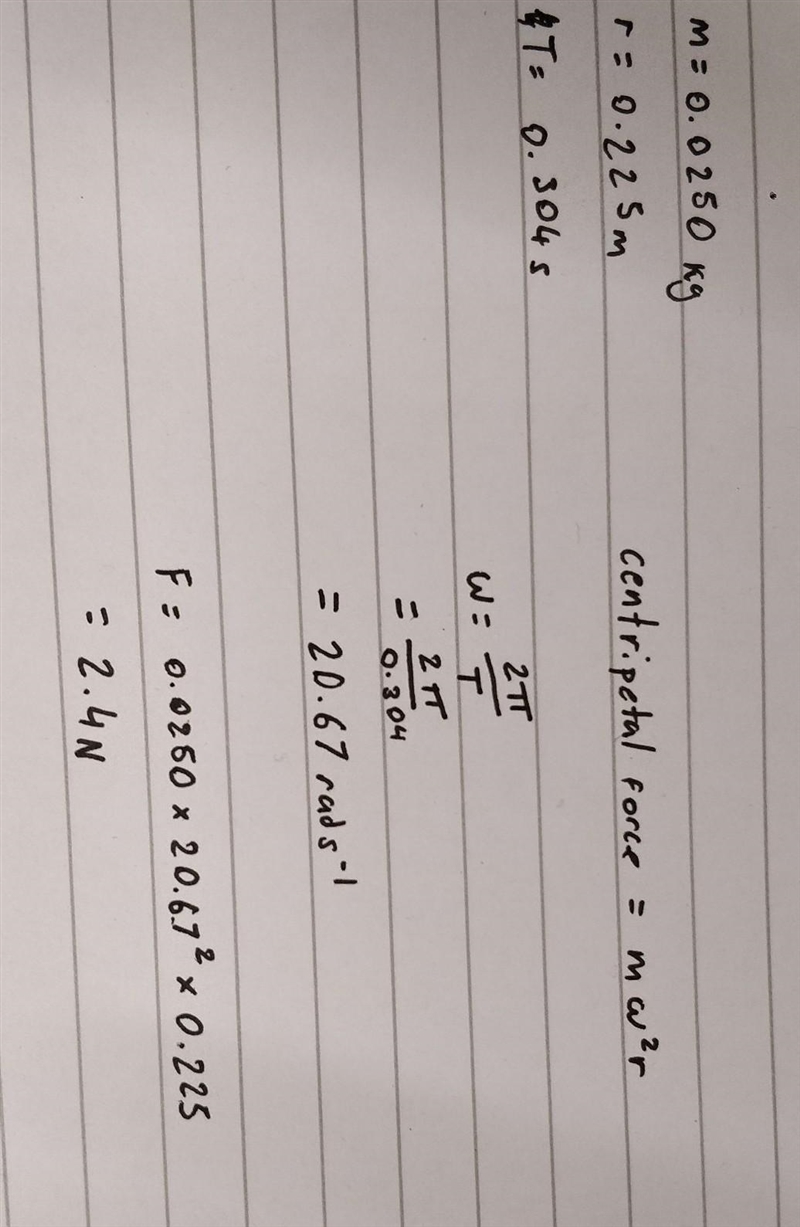 m = 0.0250 kg
r = 0.225 m
T = 0.304 s
centripetal force = mω²r
ω = 2π/T
= 2π/0.304
= 20.67 rad s⁻¹
F = 0.0250 × 20.67² × 0.225
= 2.4 N